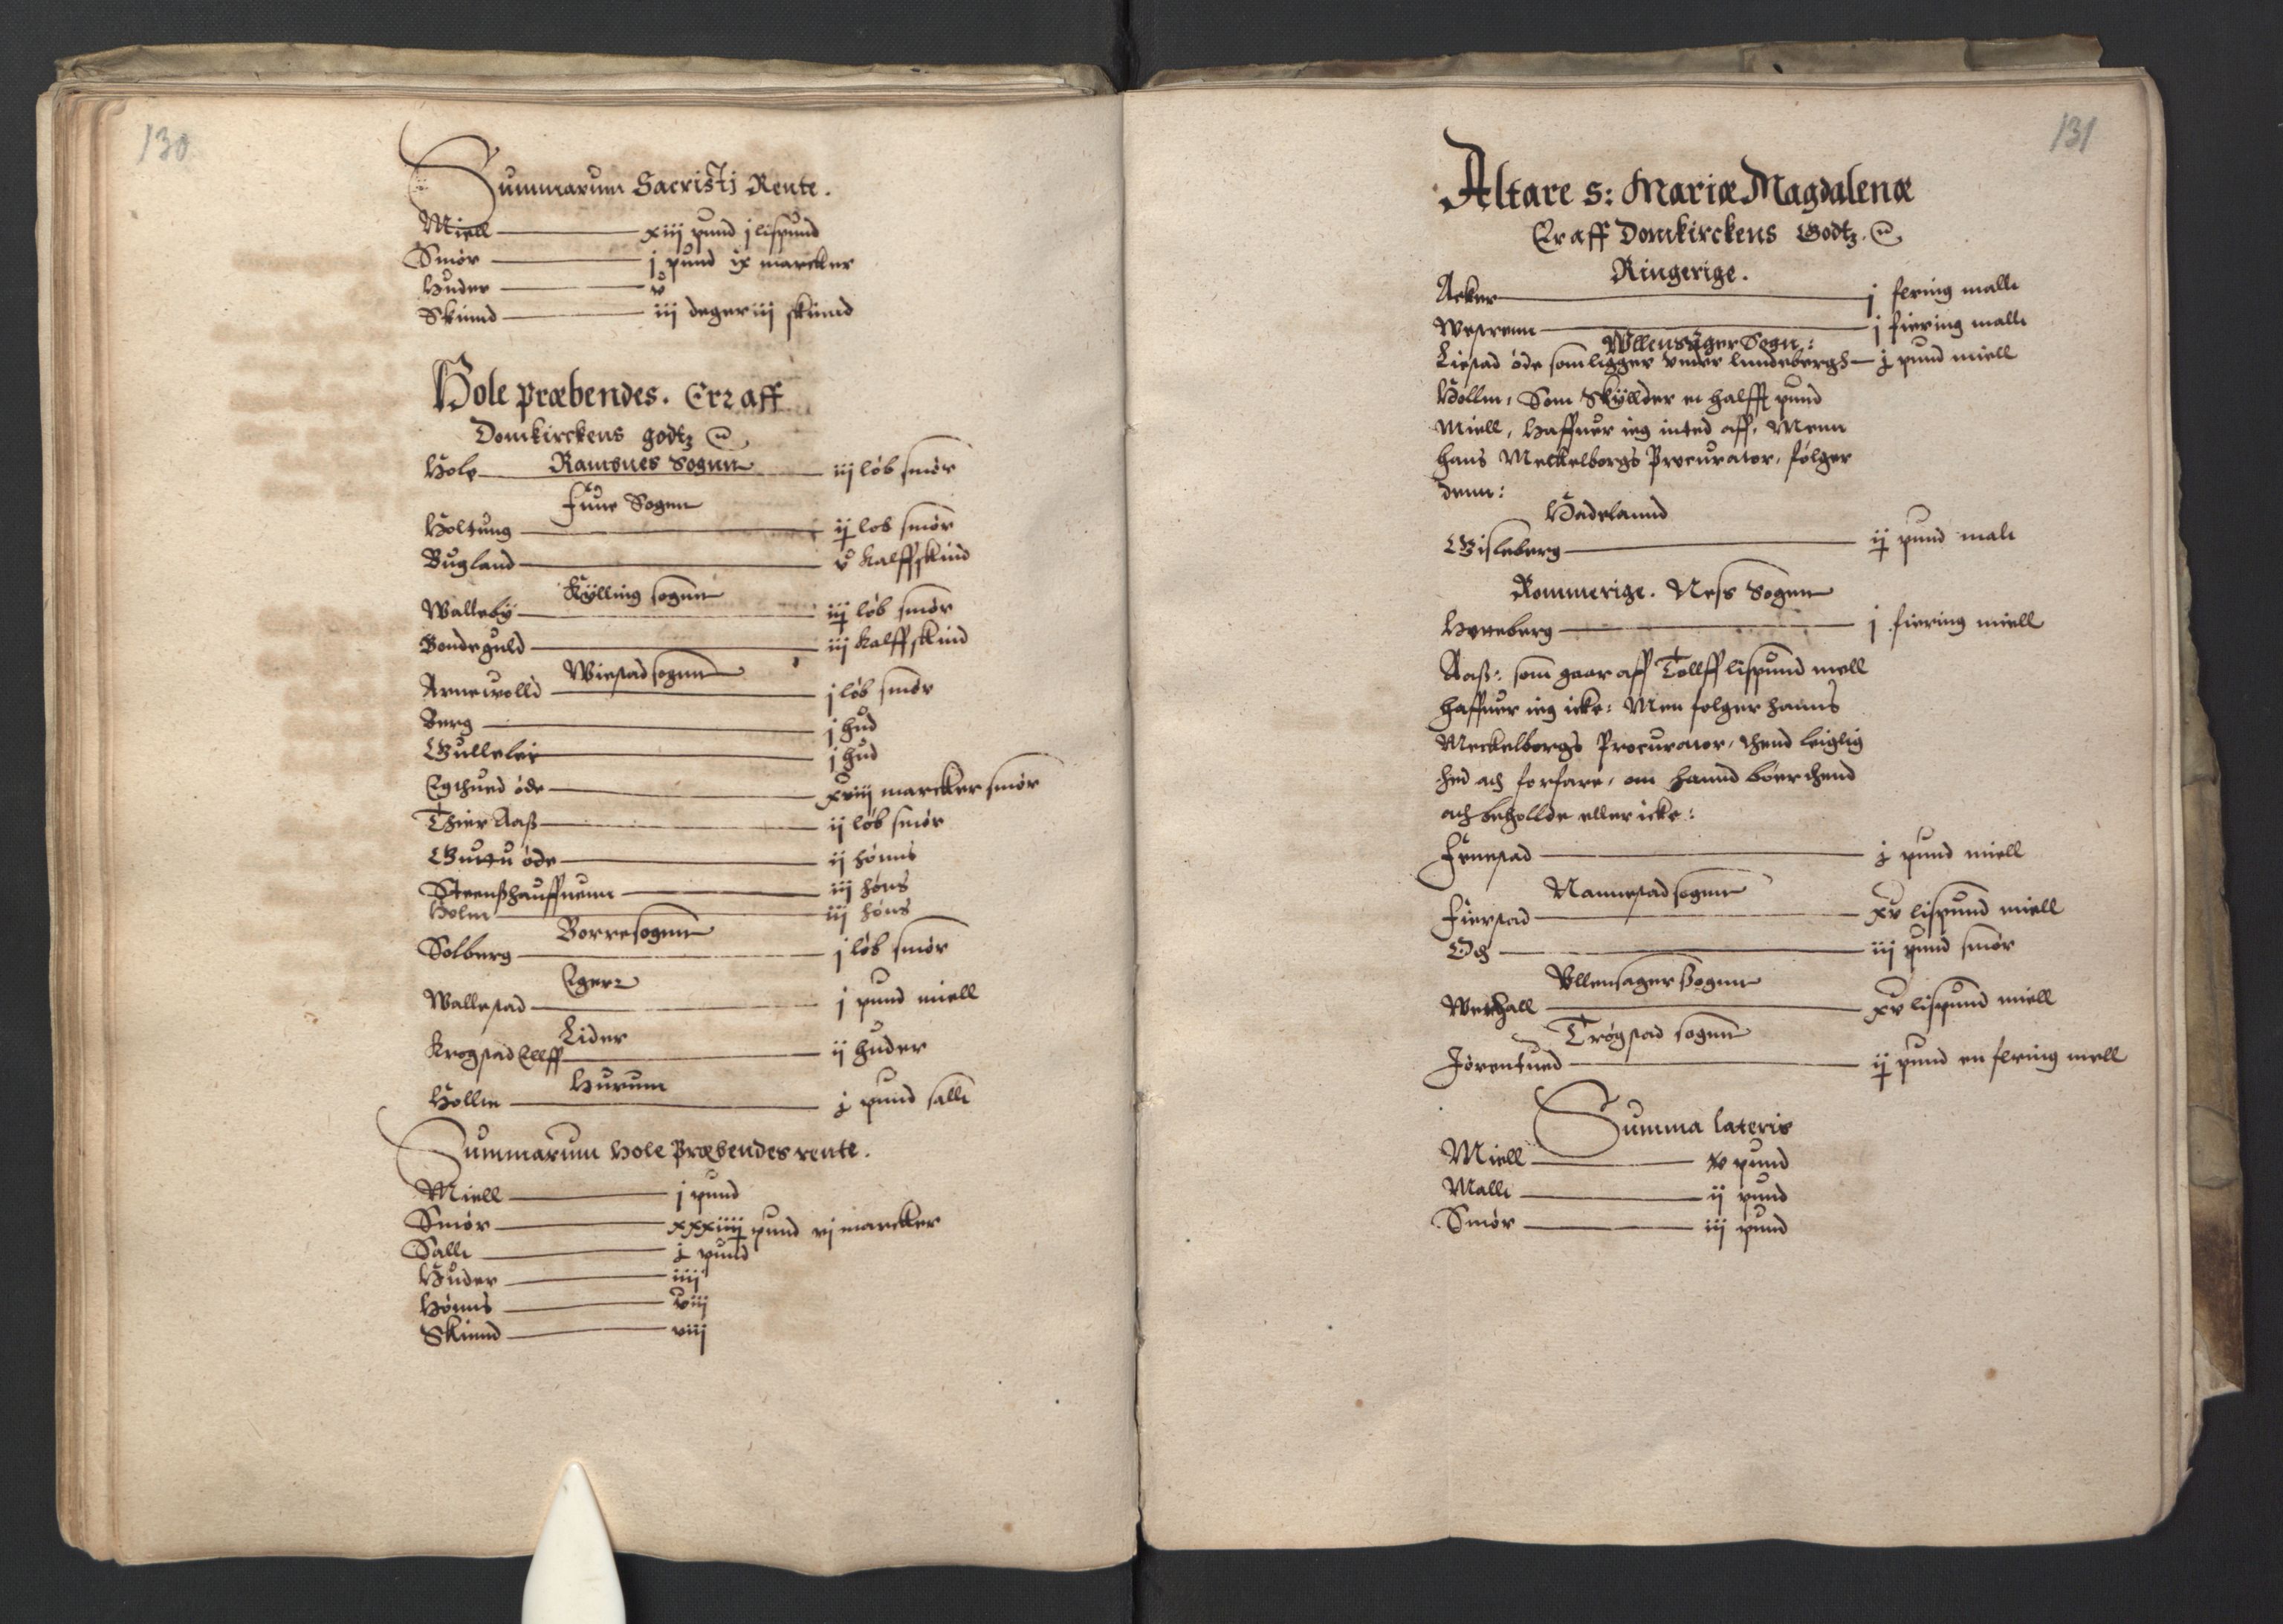 130
Summarum Sacristi Rente.
Miell xiij pund j lispund
Smør j pund ix marcker
Huder v
Skiind iij deger iij skiind
Hole præbendes. Er aff
Domkirckens godtz
Ramsnes Sognn
Hole iij løb smør
Fune Sogen
Holtung ij løb smør
Bugland v kalffskind
Kylling sognn
Walleby iij løb smør
Bondeguld iij kalffskind
Wiestad sognn
Arnewolld j løb smør
Berg j hud
Gullelei j hud
Egthued øde xviij marcker smør
Thier Aass ij løb smør
øde ij hønns
Steensshauffuenn iij høns
Holm iij høns
Borre sognn
Solberg j løb smør
Eger
Wallestad j pund miell
Lider
Krogstad Ellff ij huder
Hurum
Hollm j pund sallt
Summarum Hole Præbendes rente.
Miell j pund
Smør xxxiiij pund vj marcker
Sallt j pund
Huder iiij
Hønns viij
Skiend viij
131
Altare S: Mariæ Magdalenæ
Er aff Domkirckens Godtz.
Ringerige.
Acker j fering mallt
Westrenn j fiering mallt
Wllensager Sogn:
Liestad øde som ligger vnder lundebergh j pund miell
Hollm, Som Skyllder en halfft pund
Miell, Haffuer ieg inted aff, Menn
hans Meckelborgs Procurator, følger
denn:
Hadelannd
Gisleberg ij pund malt
Rommerige. Ness Sogenn
Hvneberg j fiering miell
Aass: som gaar aff Tollff lispund mell
haffuer ieg icke: Men følger hanns
Meckelborgs Procurator, thend leiglig
hed ath forfare, om hannd bøer thend
ath behollde eller icke:
Frnestad j pund miell
Nannestad sognn
Fierstad xv lispund miell
Och iij pund smør
Vllensager Sognn
Wethall xv lispund miell
Trøgstad sognn
Jørentued ij pund en fering mell
Summa lateris
Miell xv pund
Mallt ij pund
Smør iij pund